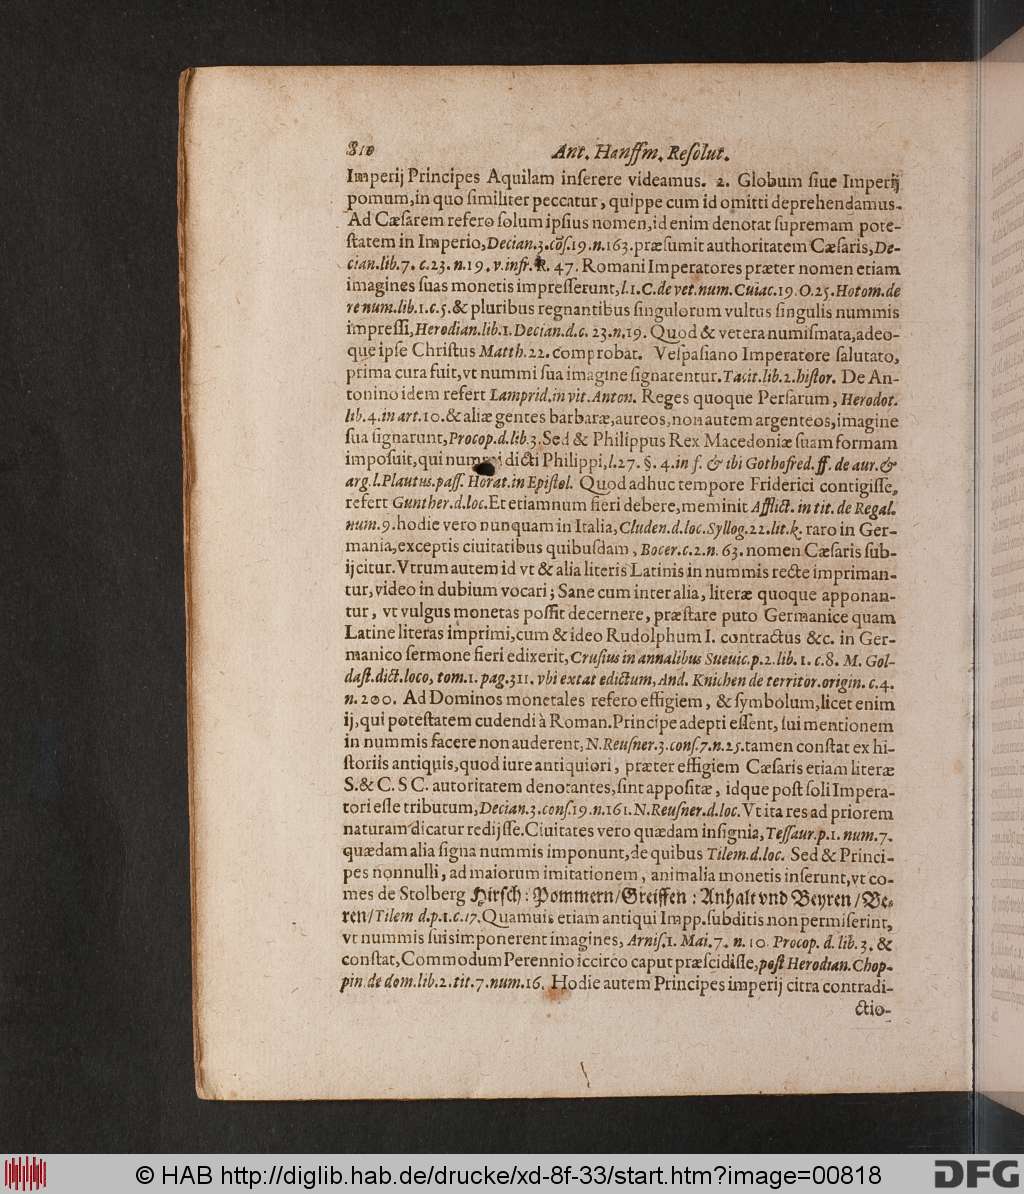 810 Ant. Hanſſm. Reſolut.
Imperij Principes Aquilam inſerere videamus. 2. Globum ſiue Imperij
pomum, in quo ſimiliter peccatur, quippe cum id omitti deprehendamus.
Ad Cæſarem refero ſolum ipſius nomen, id enim denotat ſupremam pote-
ſtatem in Imperio, Decian. 3. cõſ. 19. n. 163. præſumit authoritatem Cæſaris, De-
cian. lib. 7. c. 23. n. 19. v. infr. R. 47. Romani Imperatores præter nomen etiam
imagines ſuas monetis impreſſerunt, l. 1. C. de vet. num. Cuiac. 19. O. 25. Hotom. de
re num. lib. 1. c. 5. & pluribus regnantibus ſingulorum vultus ſingulis nummis
impreſſi, Herodian. lib. 1. Decian. d. c. 23. n. 19. Quod & vetera numiſmata, adeo-
que ipſe Chriſtus Matth. 22. comprobat. Veſpaſiano Imperatore ſalutato,
prima cura fuit, vt nummi ſua imagine ſignarentur. Tacit. lib. 2. hiſtor. De An-
tonino idem refert Lamprid. in vit. Anton. Reges quoque Perſarum, Herodot.
lib. 4. in art. 10. & aliæ gentes barbaræ, aureos, non autem argenteos, imagine
ſua ſignarunt, Procop. d. lib. 3. Sed & Philippus Rex Macedoniæ ſuam formam
impoſuit, qui nummi dicti Philippi, l. 27. §. 4. in f. & ibi Gothofred. ff. de aur. &
arg. l. Plautus. paſſ. Horat. in Epiſtol. Quod adhuc tempore Friderici contigiſſe,
refert Gunther. d. loc. Et etiamnum fieri debere, meminit Afflict. in tit. de Regal.
num. 9. hodie vero nunquam in Italia, Cluden. d. loc. Syllog. 22. lit. k. raro in Ger-
mania, exceptis ciuitatibus quibuſdam, Bocer. c. 2. n. 63. nomen Cæſaris ſub-
ijcitur. Vtrum autem id vt & alia literis Latinis in nummis recte impriman-
tur, video in dubium vocari; Sane cum inter alia, literæ quoque apponan-
tur, vt vulgus monetas poſſit decernere, præſtare puto Germanice quam
Latine literas imprimi, cum & ideo Rudolphum I. contractus &c. in Ger-
manico ſermone fieri edixerit, Cruſius in annalibus Sueuic. p. 2. lib. 1. c. 8. M. Gol-
daſt. dict. loco, tom. 1. pag. 311. vbi extat edictum, And. Knichen de territor. origin. c. 4.
n. 200. Ad Dominos monetales refero effigiem, & ſymbolum, licet enim
ij, qui poteſtatem cudendi à Roman. Principe adepti eſſent, ſui mentionem
in nummis facere non auderent, N. Reuſner. 3. conſ. 7. n. 25. tamen conſtat ex hi-
ſtoriis antiquis, quod iure antiquiori, præter effigiem Cæſaris etiam literæ
S. & C. S C. autoritatem denotantes, ſint appoſitæ, idque poſt ſoli Impera-
tori eſſe tributum, Decian. 3. conſ. 19. n. 161. N. Reuſner. d. loc. Vt ita res ad priorem
naturam dicatur redijſſe. Ciuitates vero quædam inſignia, Teſſaur. p. 1. num. 7.
quædam alia ſigna nummis imponunt, de quibus Tilem. d. loc. Sed & Princi-
pes nonnulli, ad maiorum imitationem, animalia monetis inſerunt, vt co-
mes de Stolberg Hirſch: Pommern/Greiffen: Anhalt vnd Beyren/Be-
ren/Tilem d. p. 1. c. 17. Quamuis etiam antiqui Impp. ſubditis non permiſerint,
vt nummis ſuis imponerent imagines, Arniſ. 1. Mai. 7. n. 10 Procop. d. lib. 3. &
conſtat, Commodum Perennio iccirco caput præſcidiſſe, poſt Herodian. Chop-
pin de dom. lib. 2. tit. 7. num. 16. Hodie autem Principes imperij citra contradi-
ctio-
© HAB http://diglib.hab.de/drucke/xd-8f-33/start.htm?image=00818
DFG